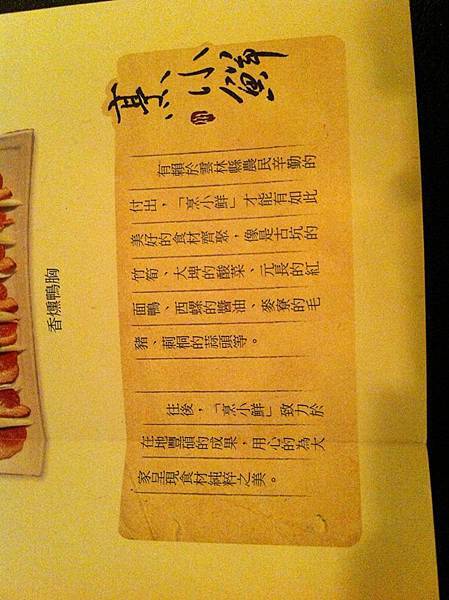 烹小鮮
有賴於雲林縣農民辛勤的
付出，「烹小鮮」才能有如此
美好的食材齊聚，像是古坑的
竹筍、大埤的酸菜、元長的紅
面鴨、西螺的醬油、麥寮的毛
豬、刺桐的蒜頭等。
往後，「烹小鮮」致力於
在地豐碩的成果，用心的為大
家呈現食材純粹之美。
香燻鴨胸